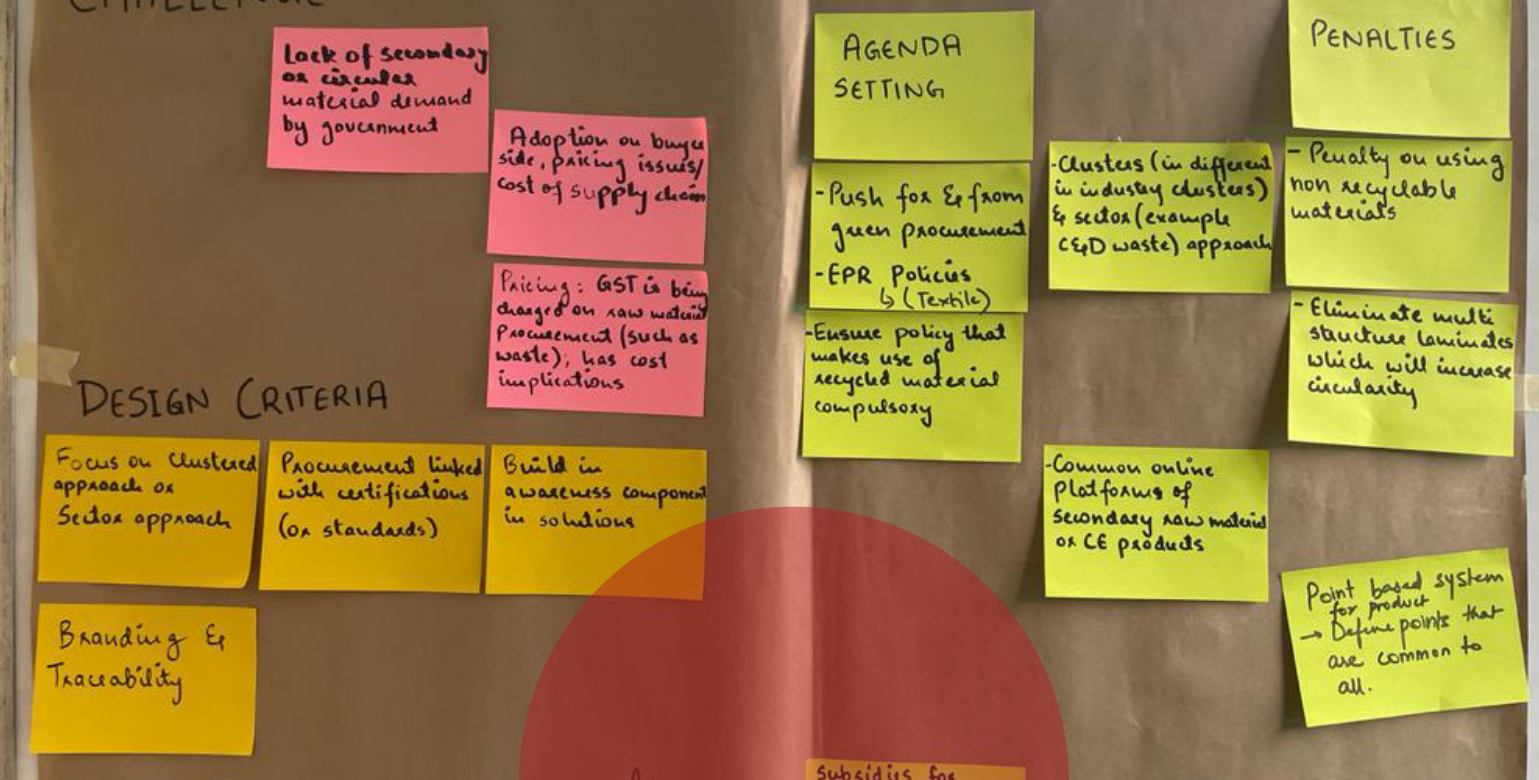 CHALLENGE
Lack of secondary
or circular
material demand
by government
Adoption on buyer
side, pricing issues/
cost of supply chain
Pricing: GST is being
charged on raw material
Procurement (such as
waste); has cost
implications
DESIGN CRITERIA
Focus on Clustered
approach or
Sector approach
Procurement linked
with certifications
(or standards)
Build in
awareness component
in solutions
Branding &
Traceability
AGENDA
SETTING
-Push for & from
green procurement
-EPR Policies
↳ (Textile)
-Ensure policy that
makes use of
recycled material
compulsory
-Clusters (in different
in industry clusters)
& sector (example
C&D waste) approach
-Common online
platforms of
secondary raw material
or CE products
PENALTIES
- Penalty on using
non recyclable
materials
- Eliminate multi
structure laminates
which will increase
circularity
Point based system
for product
→ Define points that
are common to
all.
Subsidies for